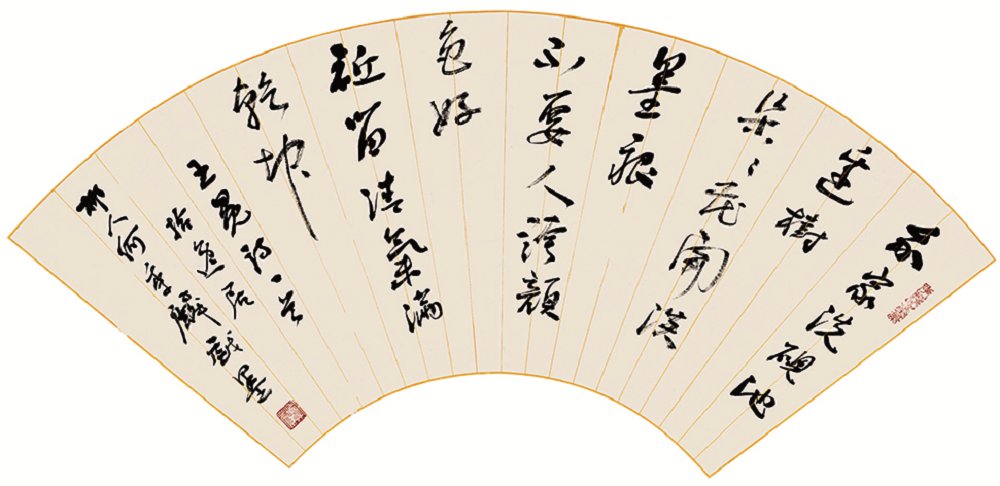 吾家洗硯池
邊樹
朵々花開淡
墨痕
不要人誇顏
色好
祗留清氣滿
乾坤
王冕詩一首
人何麟戲墨